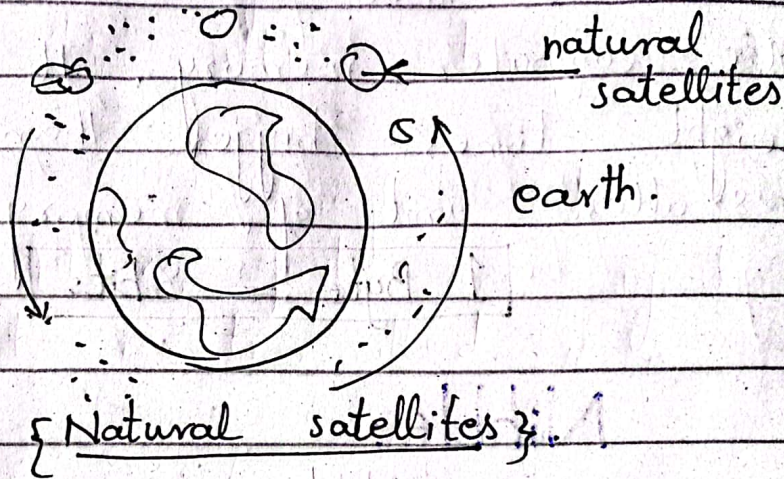 natural
satellites
earth.
{ Natural satellites }.